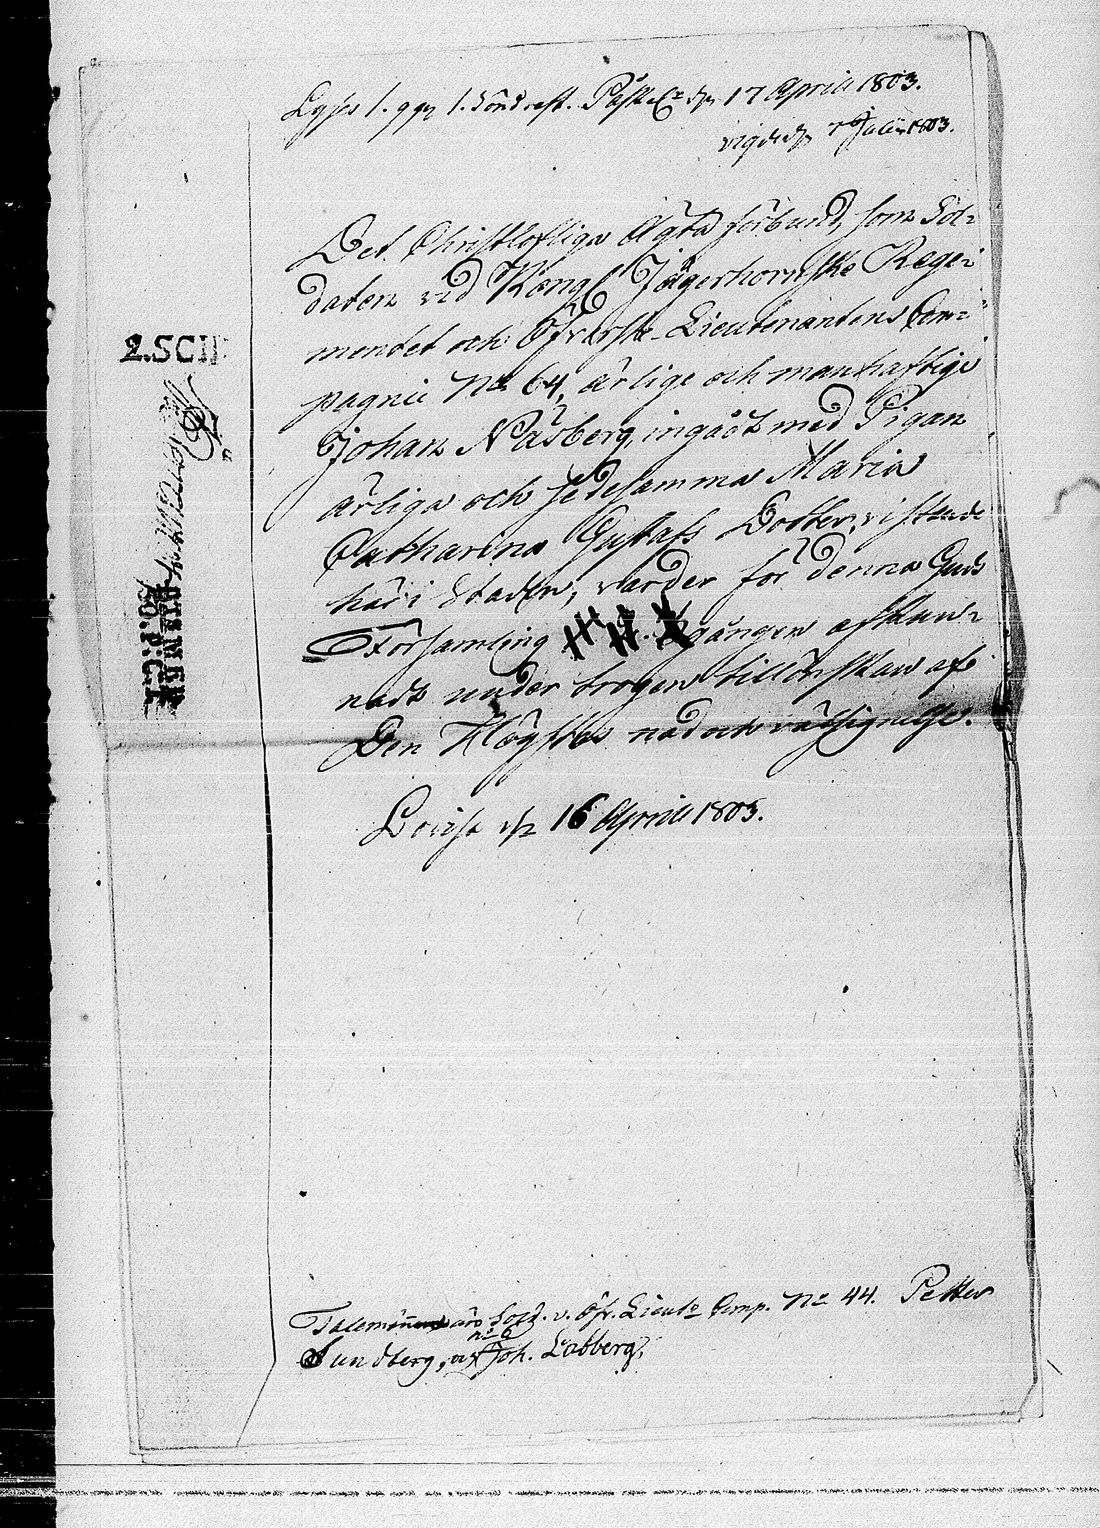 Lyses 1. ggn 1. Sönd. eft. Påsk den 17 Aprill 1803.
vigde den 7 Julii 1803.
Det Christloflige Ägta förbund, som Sol-
daten vid Kongl Jägerhornske Rege-
mentet och Öfverste-Lieutenantens Com-
pagnie No 64, ärlige och manhaftige
Johan Näsberg, ingådt med Pigan
ärliga och sedesamma Maria
Catharina Gustafs Dotter, vistande
här i Staden, varder för denna Guds
Församling gången afkun-
nadt under trogen tillönskan af
Den Högstes nåd och välsignelse.
Lovisa den 16 Aprill 1803.
2.SCII
Talemännen äro Sold. v. Öfv. Lieuts Comp. No 44. Petter
no 6
Sundberg, och Joh. Labberg,